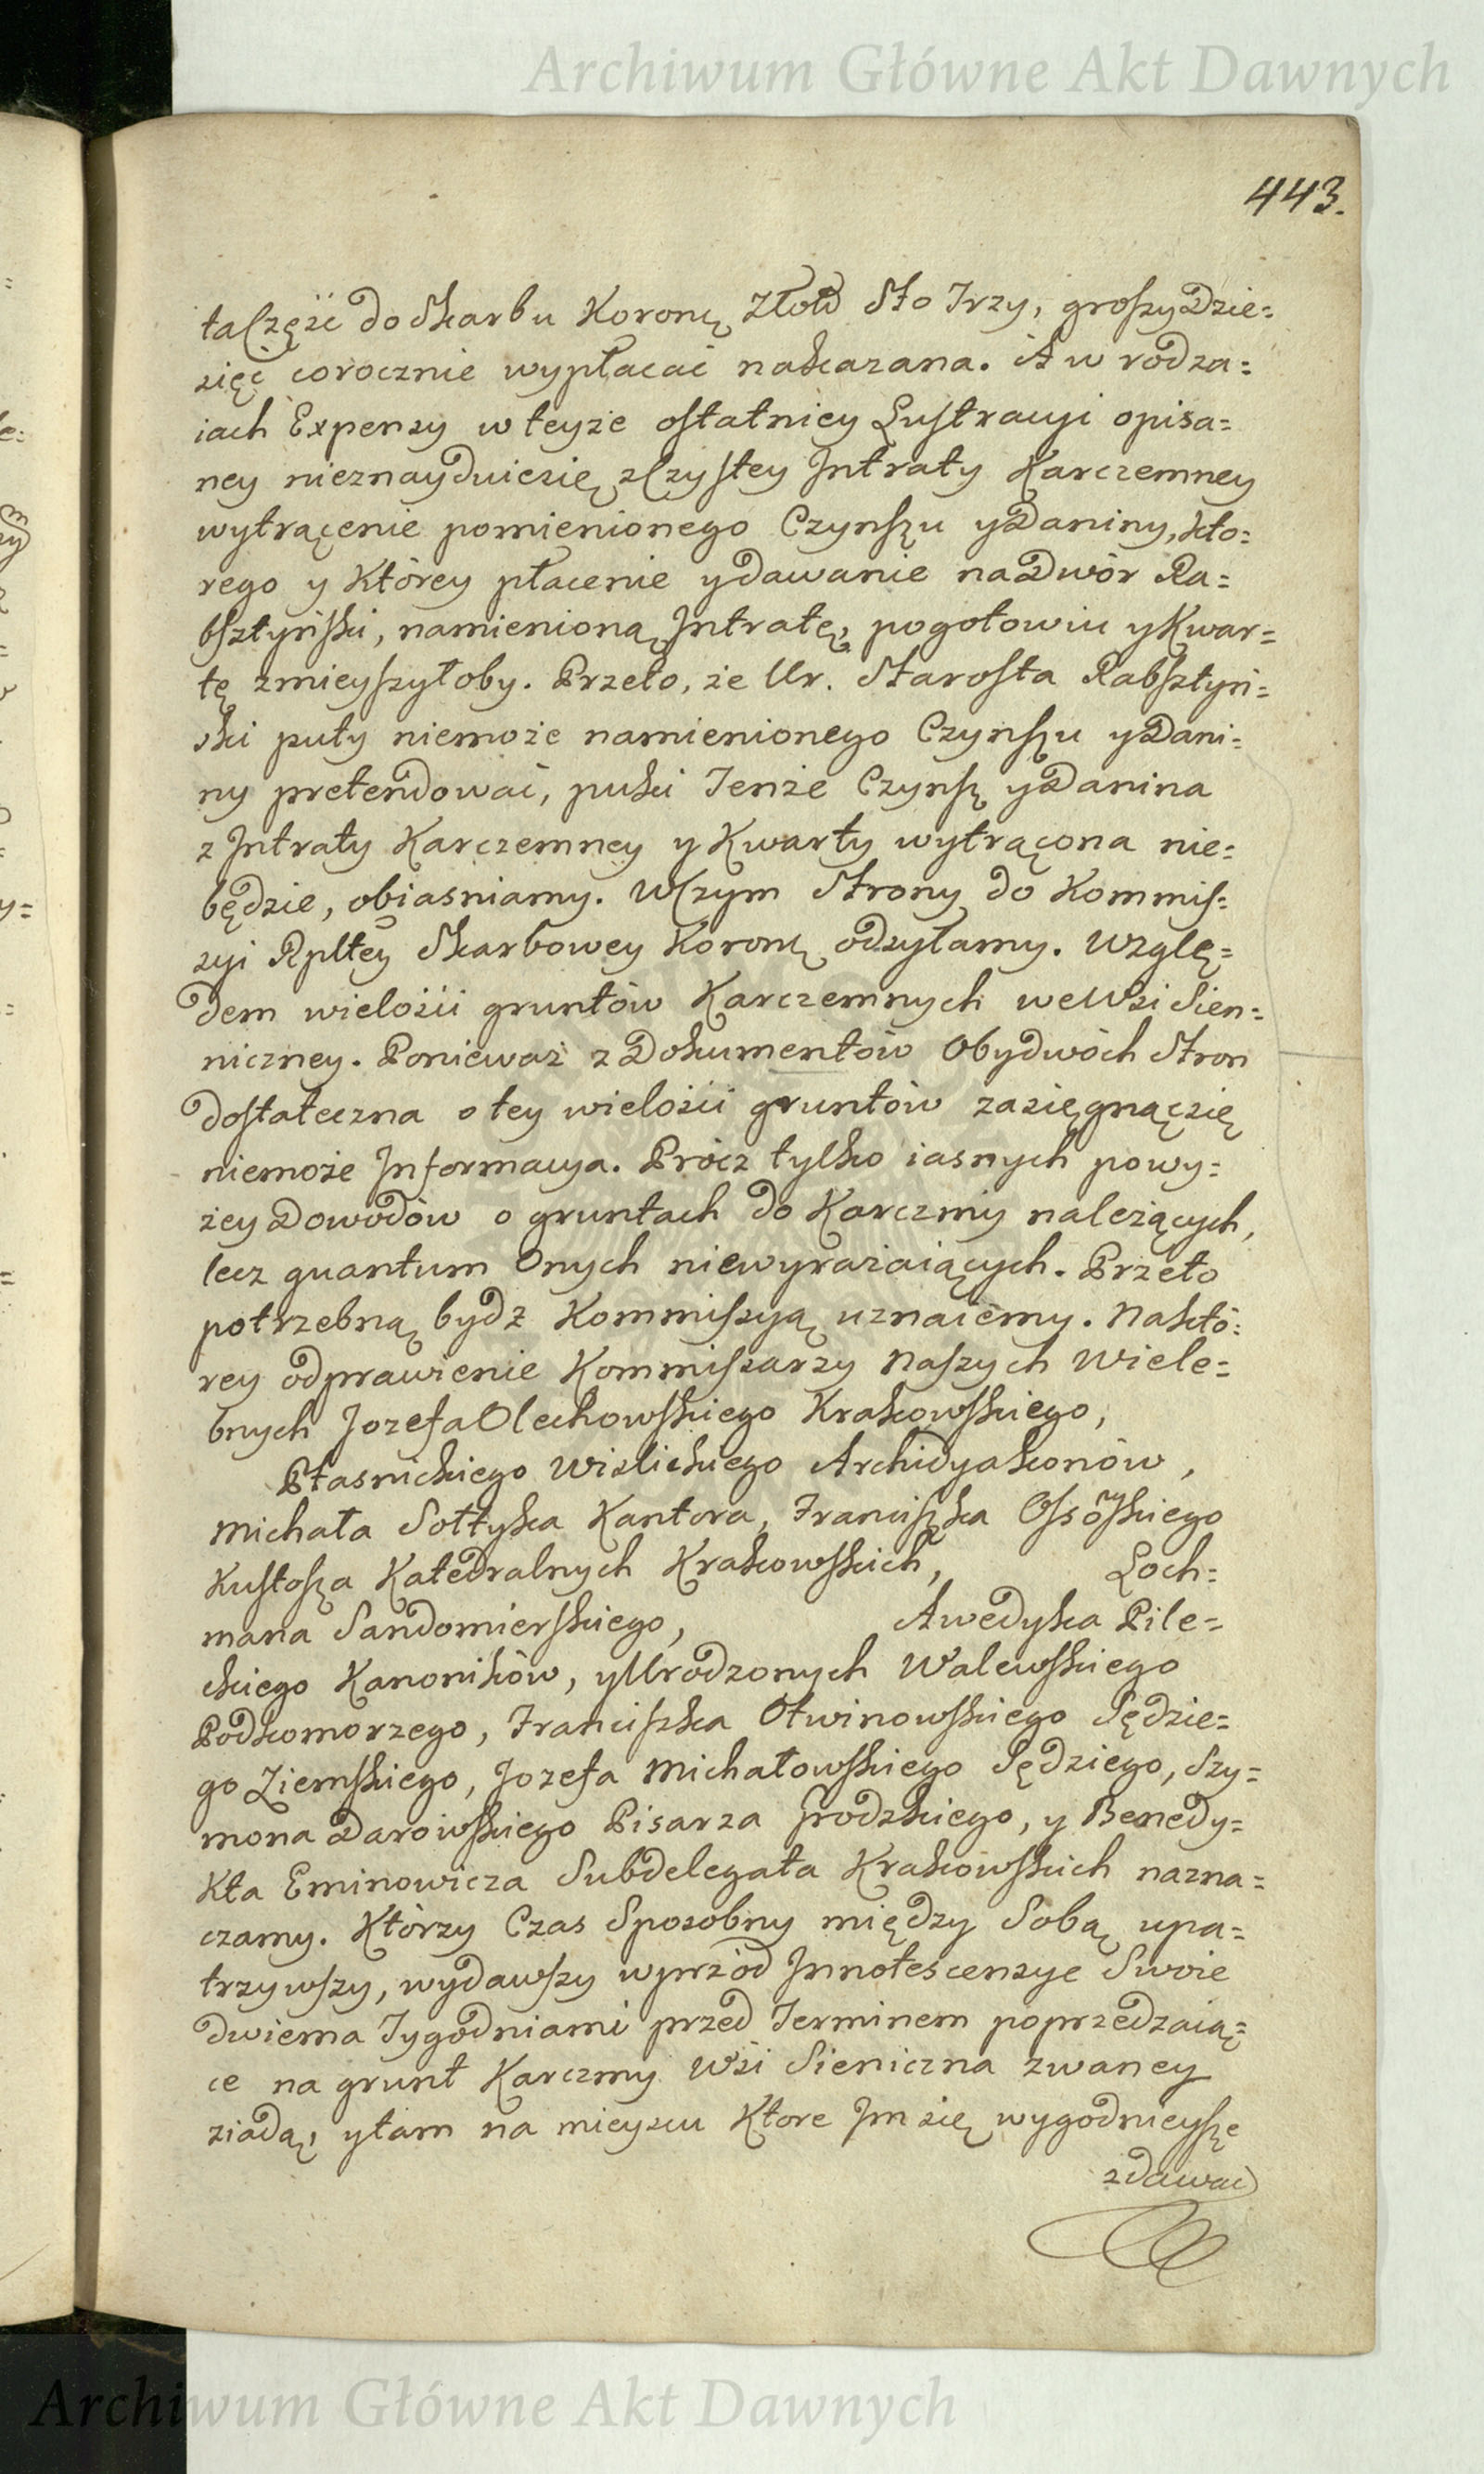 Archiwum Główne Akt Dawnych
443.
ta Część do Skarbu Koronn Złott Sto Trzy, groszy Dzie=
sięć corocznie wypłacać nakazana. A w rodza=
iach Expensy w teyże ostatniey Lustracyi opisa=
ney nieznayduiesię z Czystey Intraty Karczemney
wytrącenie pomienionego Czynszu y Daniny, kto=
rego y Którey płacenie y dawanie na Dwór Ra=
bsztyński, namienioną Intratę, pogotowiu y Kwar=
tę zmieyszyłoby. Przeto, że Ur. Starosta Rabsztyń=
ski puty niemoże namienionego Czynszu y Dani=
ny pretendować, puki Tenże Czynsz y Danina
z Intraty Karczemney y Kwarty wytrącona nie=
będzie, obiasniamy. W Czym Strony do Kommis=
syi Rpltey Skarbowey Koronn odsyłamy. Wzglę=
dem wielości gruntów Karczemnych we Wsi Sien=
niczney. Ponieważ z Dokumentów Obydwóch Stron
dostateczna o tey wielości gruntów zasięgnąćsię
niemoże Informacya. Prócz tylko iasnych powy=
żey Dowodów o gruntach do Karczmy należących,
lecz quantum Onych niewyrażaiących. Przeto
potrzebną bydź Kommissyą uznaiemy. Na któ=
rey odprawienie Kommissarzy Naszych Wiele=
bnych Jozefa Olechowskiego Krakowskiego,
Ptasnickiego Wislickiego Archidyakonów,
Michała Sołtyka Kantora, Franciszka Ossoskiego
Kustosza Katedralnych Krakowskich, Loch=
mana Sandomierskiego, Awedyka Pile=
ckiego Kanoników, y Urodzonych Walewskiego
Podkomorzego, Franciszka Otwinowskiego Sędzie=
go Ziemskiego, Jozefa Michałowskiego Sędziego, Szy=
mona Darowskiego Pisarza Grodzkiego, y Benedy=
kta Eminowicza Subdelegata Krakowskich nazna=
czamy. Którzy Czas Sposobny między Sobą upa=
trzywszy, wydawszy wprzód Innotescensye Swoie
dwiema Tygodniami przed Terminem poprzedzaią=
ce na grunt Karczmy Wsi Sieniczna zwaney
ziadą, y tam na mieyscu Ktore Im się wygodnieysze
zdawać
Archiwum Główne Akt Dawnych